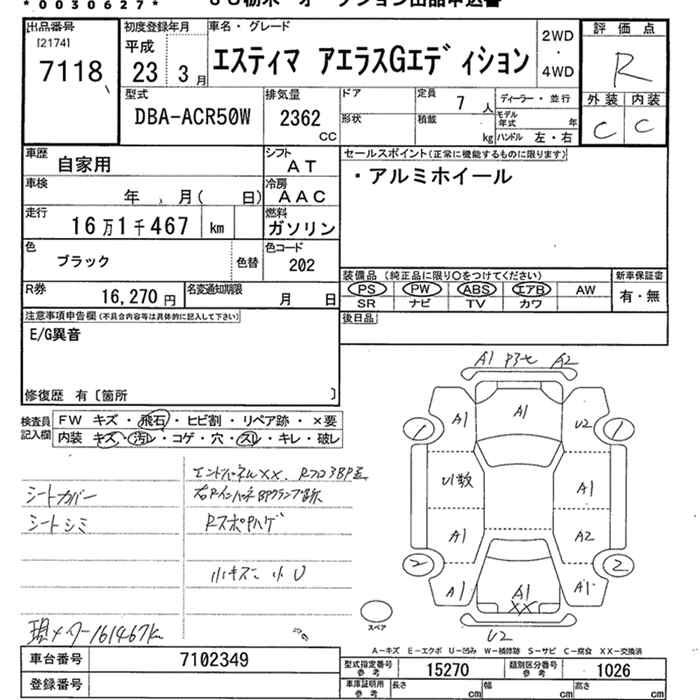 *0030627*
出品番号
[2174]
7118
初度登録年月
平成
23 3月
車名・グレード
エスティマ アエラスGエディション
2WD
・
4WD
評価点
R
外装 内装
C C
型式
DBA-ACR50W
排気量
2362
CC
ドア
形状
定員
7人
積載
kg
ディーラー・並行
モデル年式 年
ハンドル 左・右
車歴
自家用
シフト
AT
車検
年 月( 日)
冷房
AAC
走行
16万1千467 km
燃料
ガソリン
色
ブラック
色替
色コード
202
R券
16,270円
名変通知期限
月 日
セールスポイント(正常に機能するものに限ります)
・アルミホイール
装備品(純正品に限り○をつけてください)
PS PW ABS エアB AW
SR ナビ TV カワ
新車保証書
有・無
後日品
注意事項申告欄(不具合内容等は具体的に記入して下さい)
E/G異音
修復歴 有〔箇所 〕
検査員記入欄
FW キズ・飛石・ヒビ割・リペア跡・×要
内装 キズ・汚レ・コゲ・穴・スレ・キレ・破レ
シートカバー
シートシミ
エンドパネルXX.
Rスポ口ハゲ
小キズ 小U
現メーター161467k
A1 A2
A1 A1 U2
1 1
U1数 A1
A1 A2
2 2
A1 A1 A1
XX
U2
スペア
A-キズ E-エクボ U-凹み W-補修跡 S-サビ C-腐食 XX-交換済
車台番号
7102349
登録番号
型式指定番号
参考
15270
類別区分番号
参考
1026
車庫証明用
参考
長さ cm 幅 cm 高さ cm